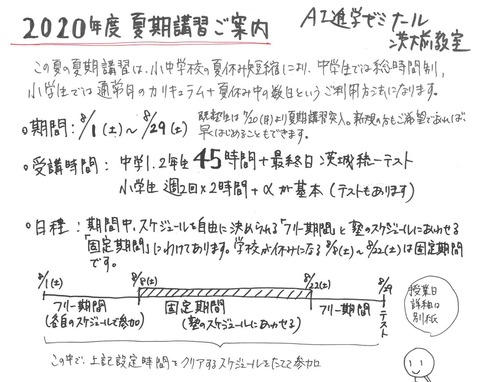 2020年度 夏期講習ご案内
AI進学ゼミナール
茨大前教室
この夏の夏期講習は、小中学校の夏休み短縮により、中学生では総時間制、
小学生では通常月のカリキュラム+夏休み中の数日というご利用方法になります。
○期間:8/1(土)~8/29(土)
既塾生は7/20(月)より夏期講習突入。新規の方もご希望であれば、
早くはじめることもできます。
○受講時間: 中学1.2年生 45時間+最終日茨城統一テスト
小学生 週2回×2時間+αが基本(テストもあります)
○日程: 期間中、スケジュールを自由に決められる「フリー期間」と塾のスケジュールにあわせる
「固定期間」にわけてあります。学校が休みになる8/8(土)~8/22(土)は固定期間
です。
8/1(土) 8/8(土) 8/22(土) 8/29
フリー期間 固定期間 フリー期間 テスト
(各自のスケジュールで参加) (塾のスケジュールにあわせる)
授業日
詳細は
別紙
この中で、上記設定時間をクリアするスケジュールをたてて参加